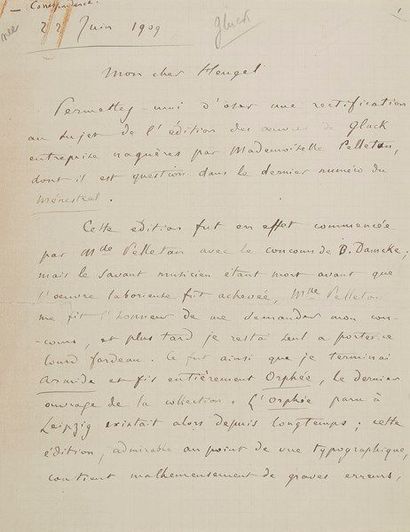 Correspondance.
22 Juin 1909
Gluck
Mon cher Heugel
Permettez-moi d'oser une rectification
au sujet de l'édition des œuvres de Gluck
entreprise naguères par Mademoiselle Pelletan,
dont il est question dans le dernier numéro du
Ménestrel.
Cette édition fut en effet commencée
par Mlle Pelletan avec le concours de B. Damcke;
mais le savant musicien étant mort avant que
l'œuvre laborieuse fût achevée, Mlle Pelletan
me fit l'honneur de me demander mon con-
cours, et plus tard je restai seul à porter ce
lourd fardeau. Ce fut ainsi que je terminai
Armide et fis entièrement Orphée, le dernier
ouvrage de la collection. L'Orphée paru à
Leipzig existait alors depuis longtemps; cette
édition, admirable au point de vue typographique,
contient malheureusement de graves erreurs,